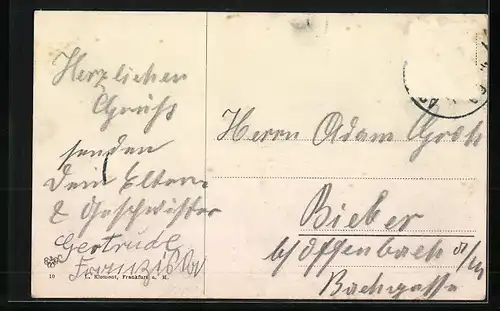 Herzlichen
Gruhs
senden
Dein Eltern
& Geschwister
Gertrude
Franziska
Herrn Adam Groh
Bieber
b/Offenbach a/M
Bachgasse
10 L. Klement, Frankfurt a. M.